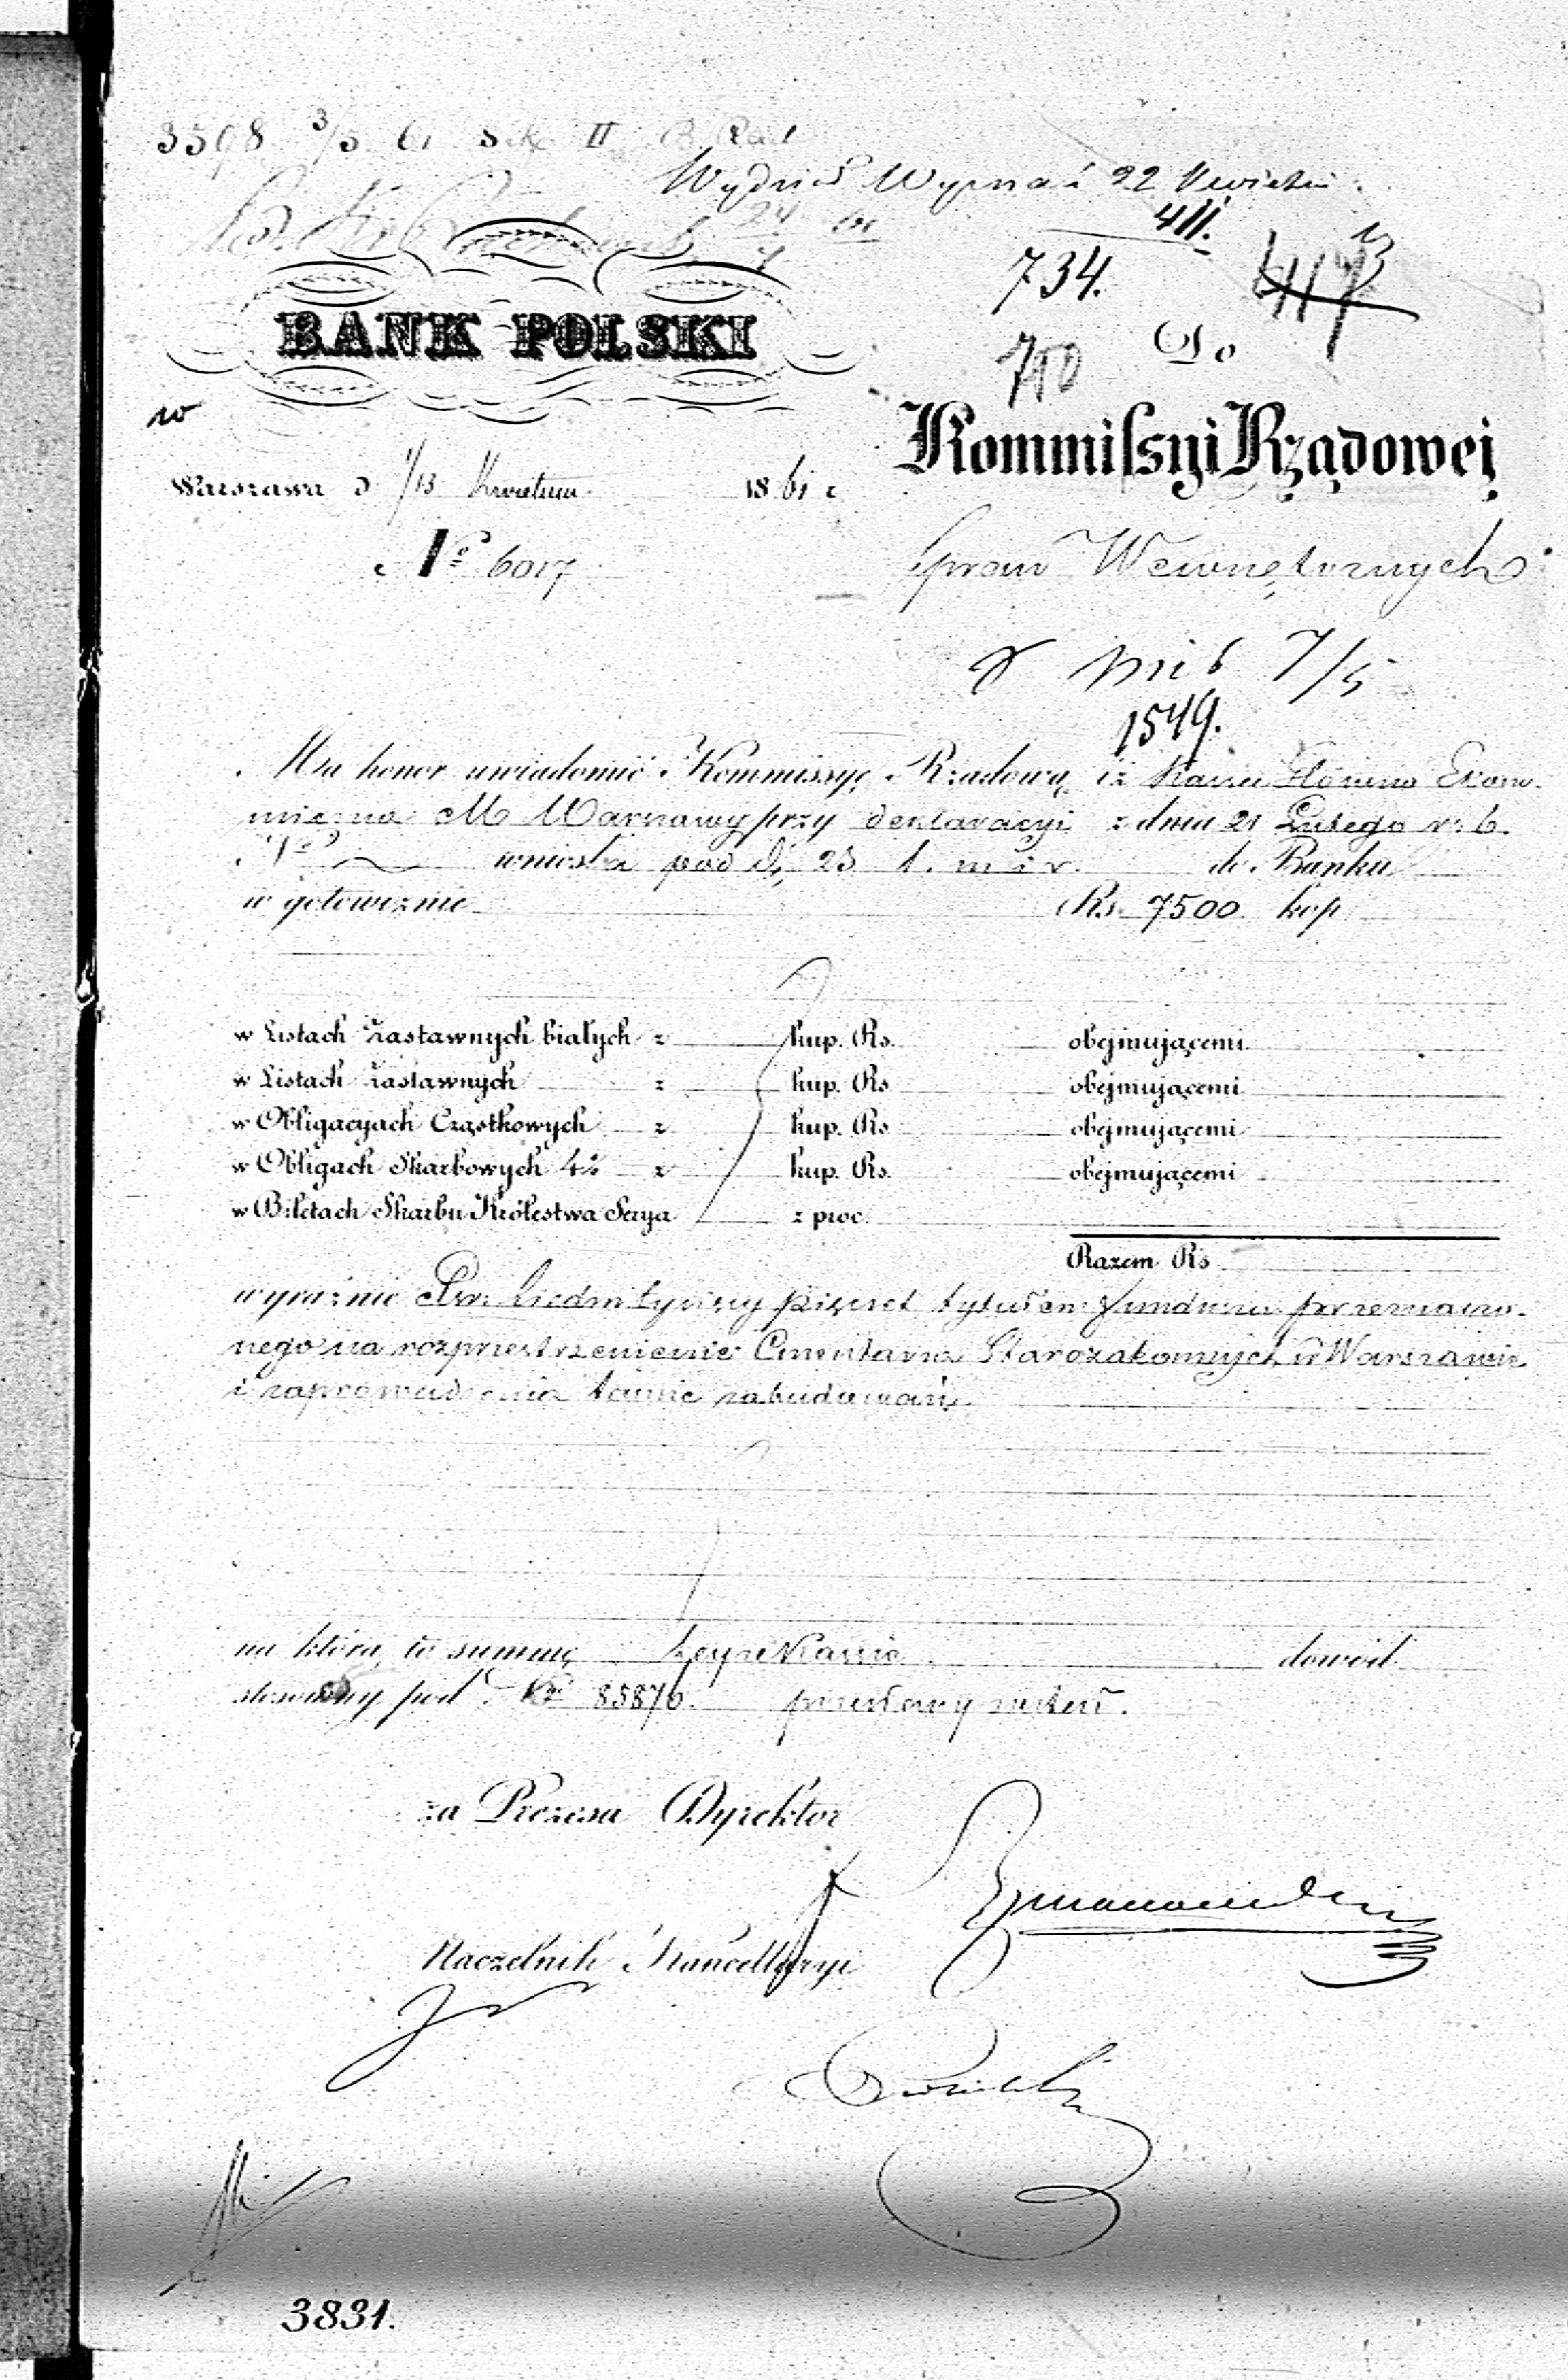 3598 3/5 61 II
Wydział Wyzna 22 Kwietnia
24
411.
734.
710
BANK POLSKI
Do
w
Kommissyi Rządowej
Warszawa d 1/13 Kwietnia 1861 r
No 6017
Spraw Wewnętrznych
7/5
1549.
Ma honor uwiadomić Kommissyę Rządową, iż Kassa Główna Ekono-
miczna M Warszawy przy deklaracyi z dnia 21 Lutego r. b.
No wniosła pod d. 23 t. m i r. do Banku
w gotowiznie Rs. 7500 kop
w Listach Zastawnych białych z kup. Rs. obejmującemi
w Listach Zastawnych z kup. Rs. obejmującemi
w Obligacyach Cząstkowych z kup. Rs. obejmującemi
w Obligach Skarbowych 4% z kup. Rs. obejmującemi
w Biletach Skarbu Królestwa Serya z proc.
Razem Rs
wyraźnie Rs. siedm tysięcy pięćset tytułem funduszu przeznaczo-
nego na rozprzestrzenienie Cmentarza Starozakonnych w Warszawie
i zaprowadzenia tamże zabudowań.
na którą to summę tejże Kassie dowód
stosowny pod No 85876. przesłany został.
za Prezesa Dyrektor
Naczelnik Kancellaryi
3831.